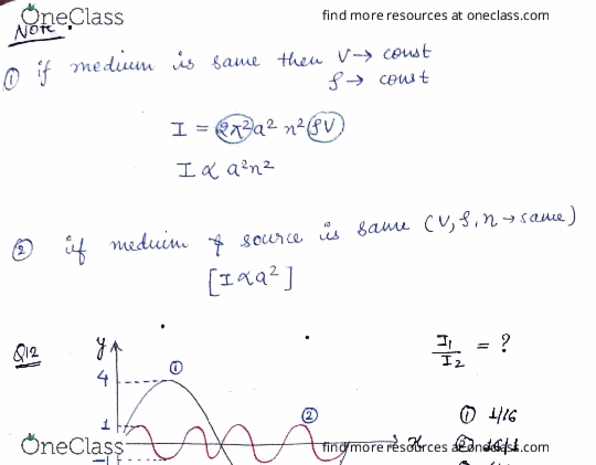 OneClass
find more resources at oneclass.com
Note.
① if medium is same then V → const
ρ → const
I = 2π²a² n² ρV
I ∝ a²n²
② if meduim & source is same (V, ρ, n → same)
[I ∝ a²]
Q12
y
4
①
I₁/I₂ = ?
1
②
① 1/16
x
② 16/1
-1
OneClass
find more resources at oneclass.com